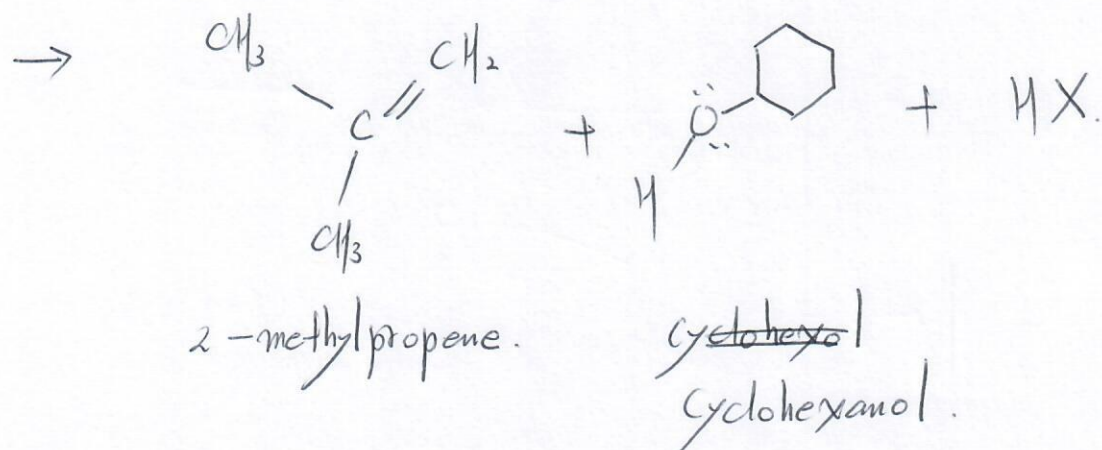 → CH₃ C CH₂ CH₃ + H Ö + HX.
2-methylpropene.
cyclohexol
Cyclohexanol.